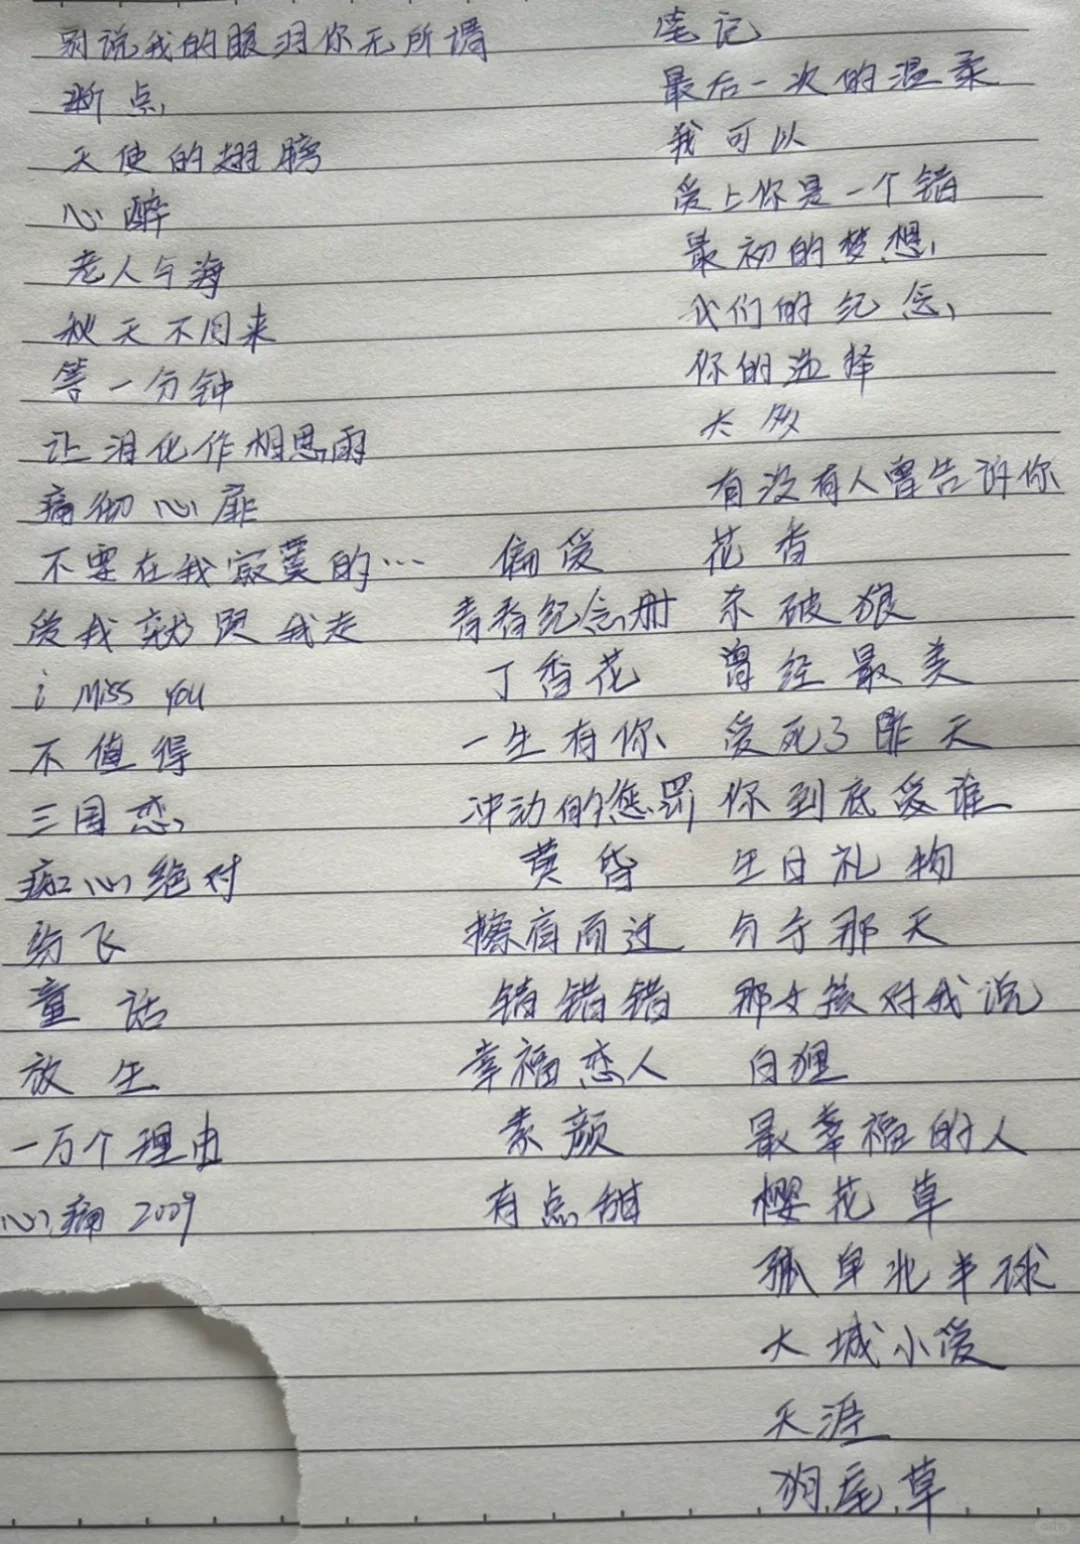 别说我的眼泪你无所谓
断点
天使的翅膀
心醉
老人与海
秋天不回来
等一分钟
让泪化作相思雨
痛彻心扉
不要在我寂寞的…
爱我就跟我走
i miss you
不值得
三国恋
痴心绝对
纷飞
童话
放生
一万个理由
心痛2009
偏爱
青春纪念册
丁香花
一生有你
冲动的惩罚
黄昏
擦肩而过
错错错
幸福恋人
素颜
有点甜
笔记
最后一次的温柔
我可以
爱上你是一个错
最初的梦想
我们的纪念
你的选择
太多
有没有人曾告诉你
花香
杀破狼
曾经最美
爱死了昨天
你到底爱谁
生日礼物
分手那天
那女孩对我说
白狐
最幸福的人
樱花草
孤单北半球
大城小爱
天涯
狗尾草